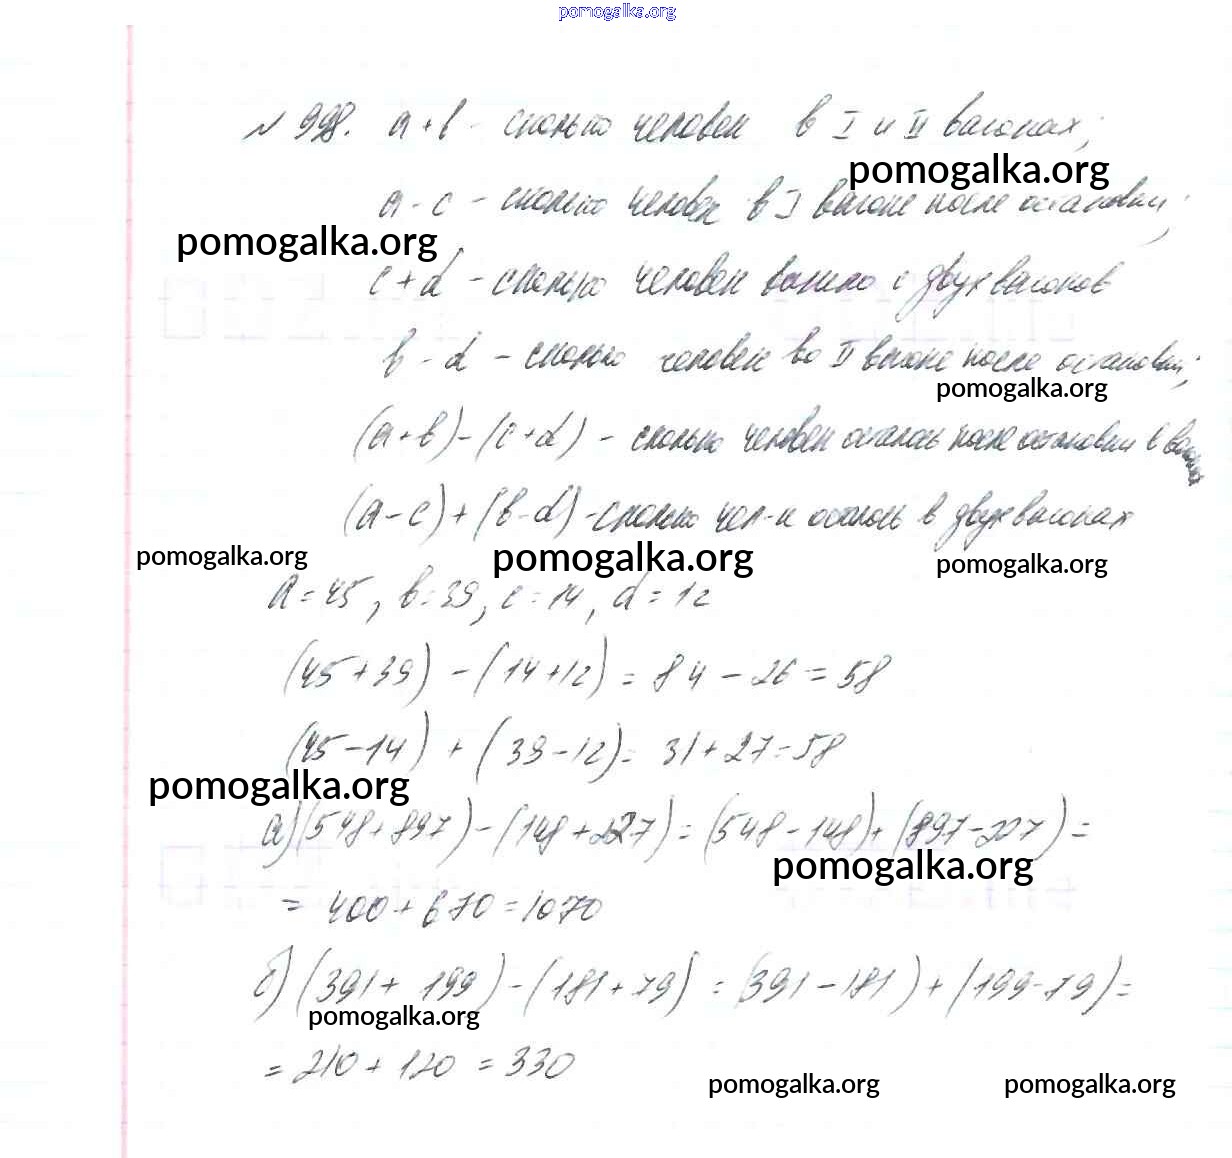 pomogalka.org
№ 998. a+b - сколько человек в I и II вагонах;
pomogalka.org
a - c - сколько человек в I вагоне после остановки;
pomogalka.org
c+d - сколько человек вышло с двух вагонов
b - d - сколько человек во II вагоне после остановки;
pomogalka.org
(a+b)-(c+d) - сколько человек осталось после остановки в
(a-c)+(b-d) - сколько чел-к осталось в двух вагонах
pomogalka.org pomogalka.org pomogalka.org
a=45, b=39, c=14, d=12
(45+39)-(14+12)=84-26=58
(45-14)+(39-12)=31+27=58
pomogalka.org
а)(548+897)-(148+227)=(548-148)+(897-227)=
pomogalka.org
= 400+670=1070
б)(391+199)-(181+79)=(391-181)+(199-79)=
pomogalka.org
= 210+120=330
pomogalka.org pomogalka.org